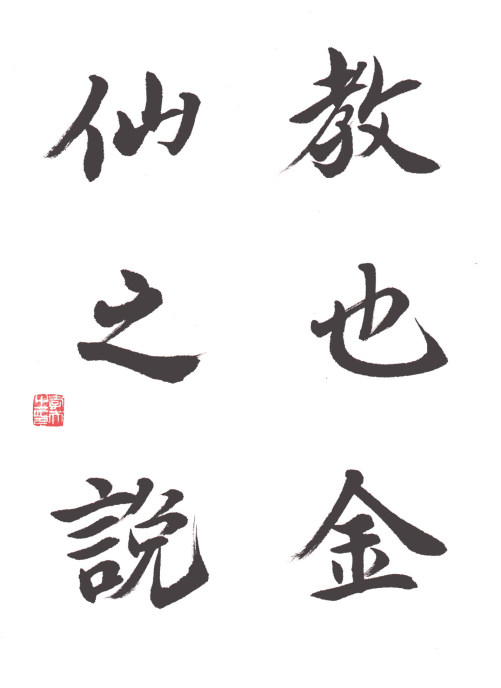 教也金
仙之説